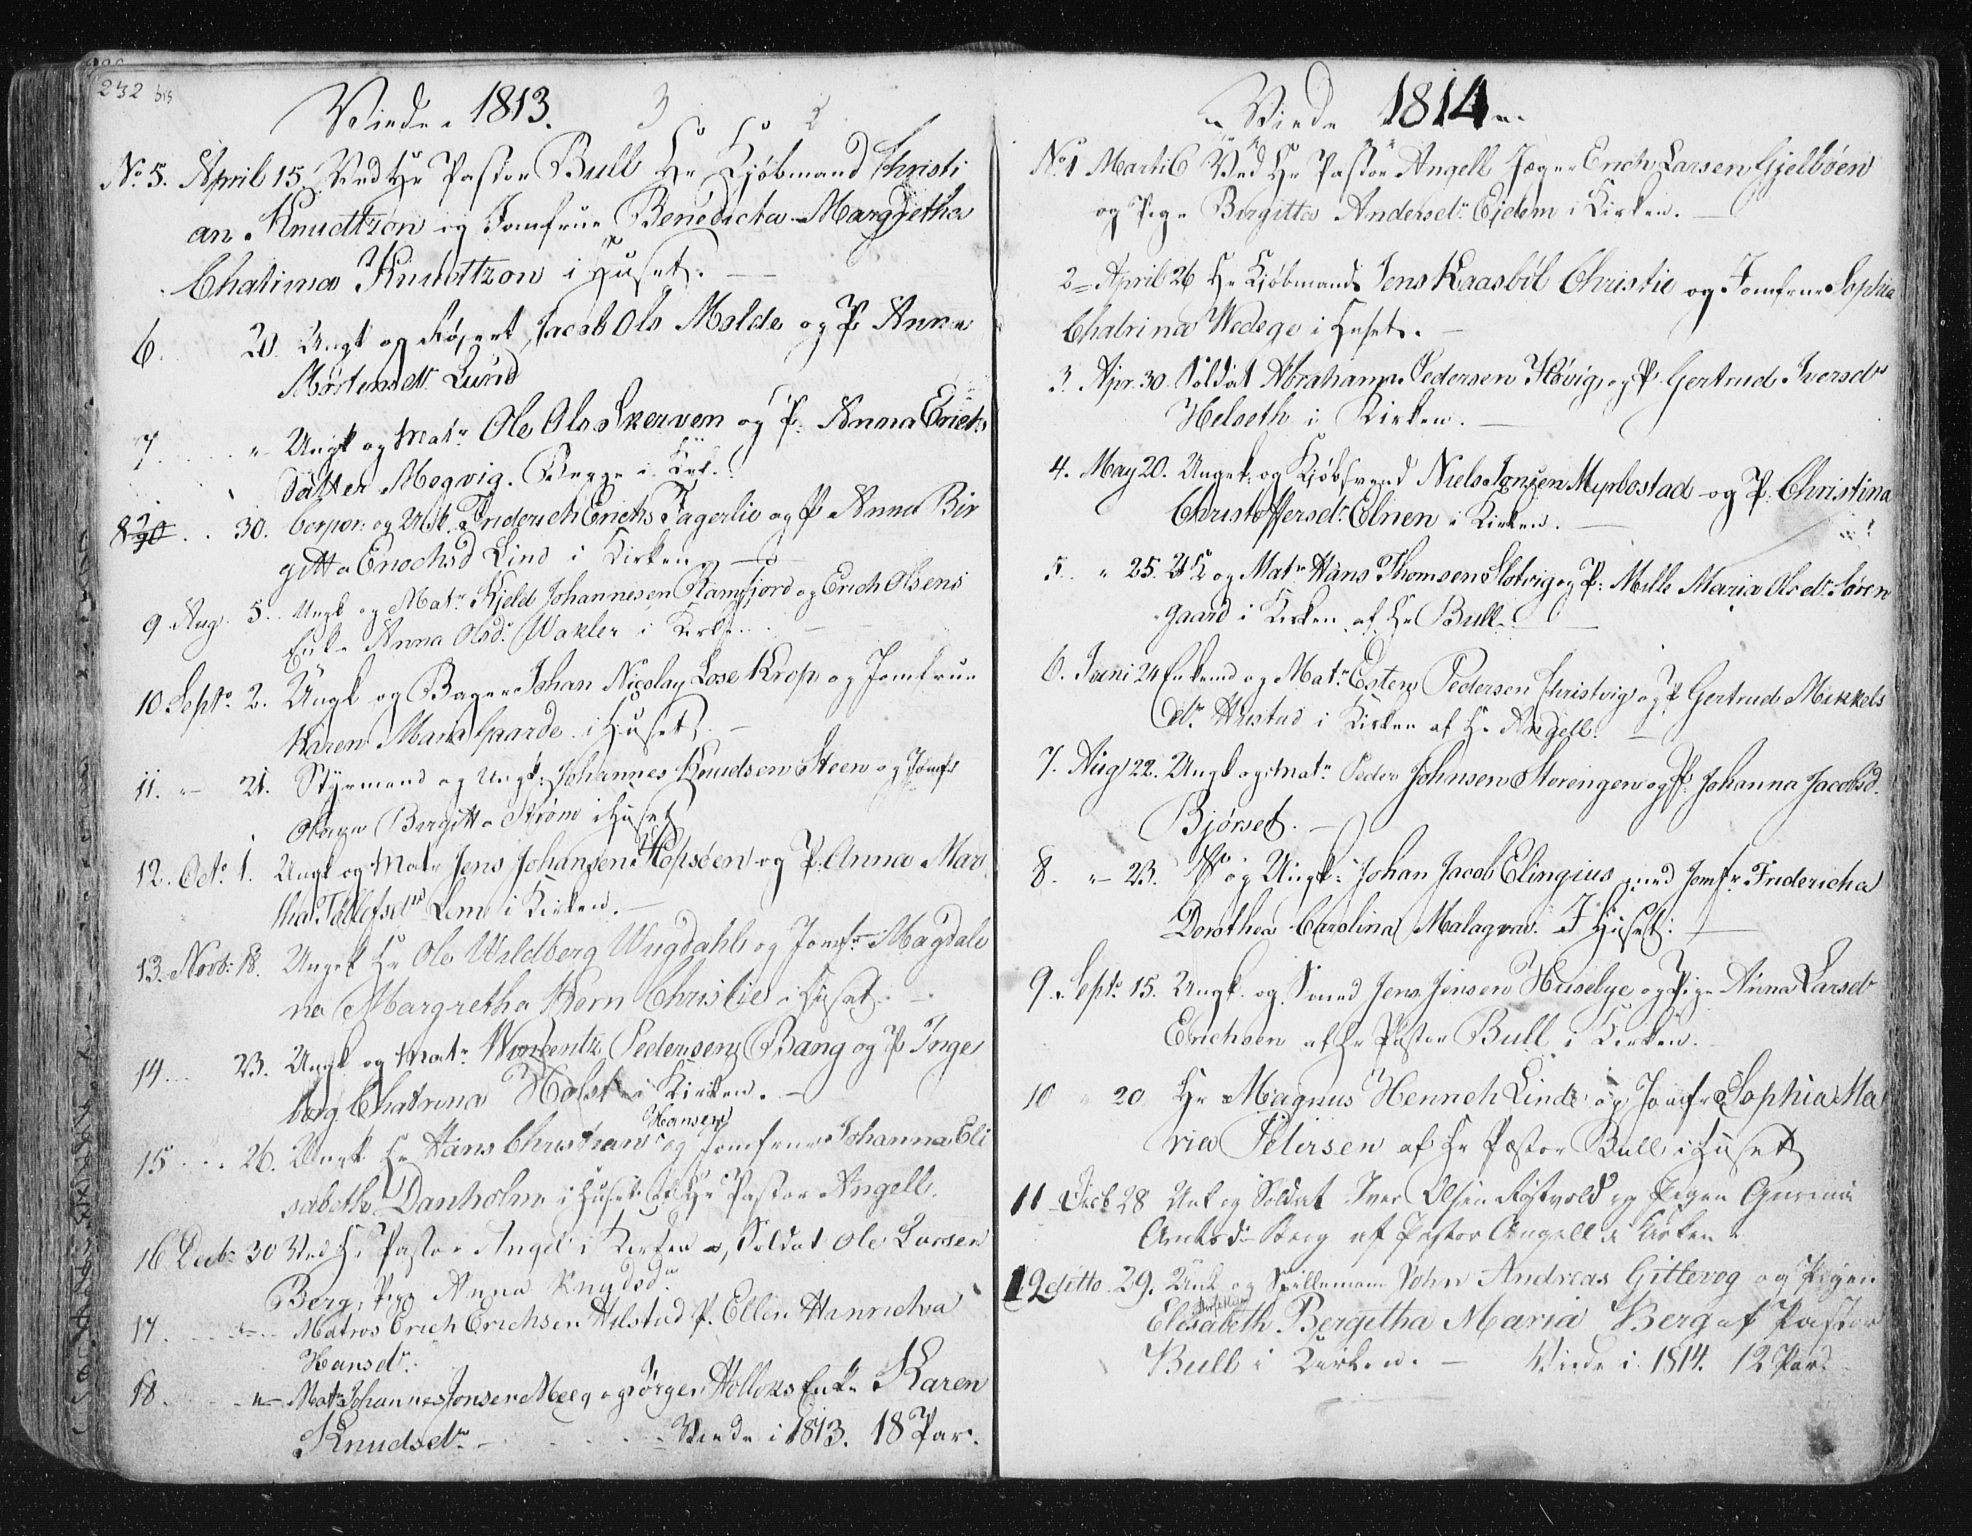 232 bis
Viede 1813.
No 5. April 15. Ved Hr Pastor Bull Hr Kjøbmand Christi
an Knudtzon og Jomfrue Benedicta Margretha
Chatrina Knudtzon i Huset.
6. 20. Ungk og Jacob Ols Molde og P. Anne
Mortensdr Lund
7. " Ungk og Matr Ole Ols Skerven og P. Anna Erichs
datter Mogvig. Begge i Kirk.
8 30. Corpor: og Ungk. Friderich Erichs Fagerlie og P. Anna Bir
gitta Enochsd Lind i Kirken
9 Aug. 5. Ungk og Matr Kjeld Johannesen Ramfiord og Erich Olsens
Enke Anna Olsdr Wakler i Kirken
10 Septr 2. Ungk og Bager Johan Nicolay Lose Krop og Jomfrue
Karen Maria Gaarde i Huset.
11. " 21. Styrmand og Ungk: Johannes Knudsen Steen og Jomfr
Birgitta Strøm i Huset
12. Octr 1. Ungk og Matr Jens Johansen Hopsøen og P. Anna Mar
tha Tollefsdr Lem i Kirken.
13. Novbr 18. Ungk Hr Ole Waldberg Wugdahl og Jomfr Magdale
na Margretha Horn Christie i Huset.
14 23. Ungk og Matr Wincentz Pedersen Bang og P Inge
borg Chatrina Holst i Kirken.
Hansen
15 26. Ungk Hr Hans Christian og Jomfrue Johanna Eli
sabeth Danholm i Huset af Hr Pastor Angell.
16 Decbr 30 Ved Hr Pastor Angel i Kirken Soldat Ole Larsen
Berg, Pige Anna Knudsdr
17. Matros Erich Erichsen Hilstad P. Ellen Hanricha
Hansdr.
18. Matr Johannes Jonsen Meeg og Jørgen Holloks Enke Karen
Knudsdr Viede i 1813. 18 Par.
Viede 1814
No 1 Marti 6 Ved Hr Pastor Angell Jæger Erich Larsen Gjelbøen
og Pige Birgitta Andersdr Ejdem i Kirken.
2 April 26 Hr Kjøbmand Jens Kaasbøl Christie og Jomfrue Sophia
Chatrina Wedege i Huset.
3 Apr. 30. Soldat Abraham Pedersen Høvig og P. Gertrud Iversdr
Helseth i Kirken.
4. May 20. Ungk. og Kjøbsvend Niels Jonsen Myrbostad og P. Christina
Christoffersdr Elnen i Kirken.
5. " 25. Ugk og Matr Hans Thomsen Slotvig og P: Mille Maria Olsdr Søren
gaard i Kirken af Hr Bull.
6. Juni 24 Enkemd og Matr Esten Pedersen Julsetvig og P Gertrud Mikkels
dr Hustad i Kirken af Hr Angell.
7. Aug 22. Ungk og Matr Peder Johnsen Storengen og P. Johanna Jacobsd.
Bjørset.
8. " 23. Hr og Ungk: Johan Jacob Elingius med Jomfr Fridericha
Dorothea Carolina Malagrav. I Huset.
9. Septr 15. Ungk. og Smed Jens Jensen Huselye og Pige Anna Larsdr
Erichsen af Hr Pastor Bull i Kirken.
10 " 20 Hr Magnus Henrich Linde og Jomfr Sophia Ma
ria Petersen af Hr Pastor Bull i Huset
11 Decb 28 Unk og Soldat Iver Olsen Røstvold og Pigen Gurina
Amtsdr Berg af Pastor Angell i Kirken
12 ditto 29. Unk og Spillemann John Andreas Gittevog og Pigen
Elisabeth Bergitha Maria Berg af Pastor
Bull i Kirken. Viede i 1814. 12 Par